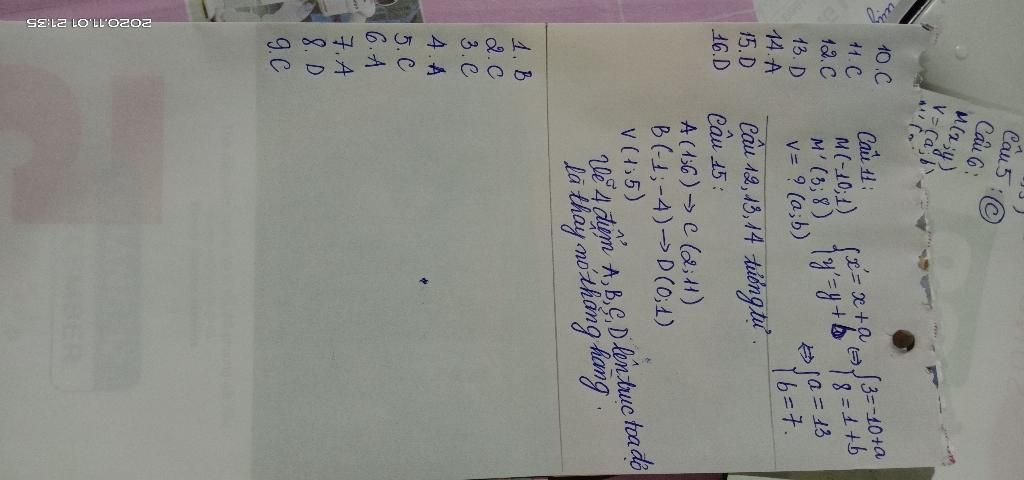 2020.11.01 21:35
Câu 5: C
Câu 6:
M(x;y)
V=(a;b)
10. C
11. C
12. C
13. D
14. A
15. D
16. D
Câu 11:
M(-10;1)
M'(3;8)
V = ? (a;b)
{x' = x + a
{y' = y + b
⇔ {3 = -10 + a
{8 = 1 + b
⇔ {a = 13
{b = 7.
Câu 12, 13, 14 tương tự.
Câu 15:
A(1;6) → C(2;11)
B(-1;-4) → D(0;1)
V(1;5)
Vẽ 4 điểm A, B, C, D lên trục toạ độ
là thấy nó thẳng hàng.
1. B
2. C
3. C
4. A
5. C
6. A
7. A
8. D
9. C